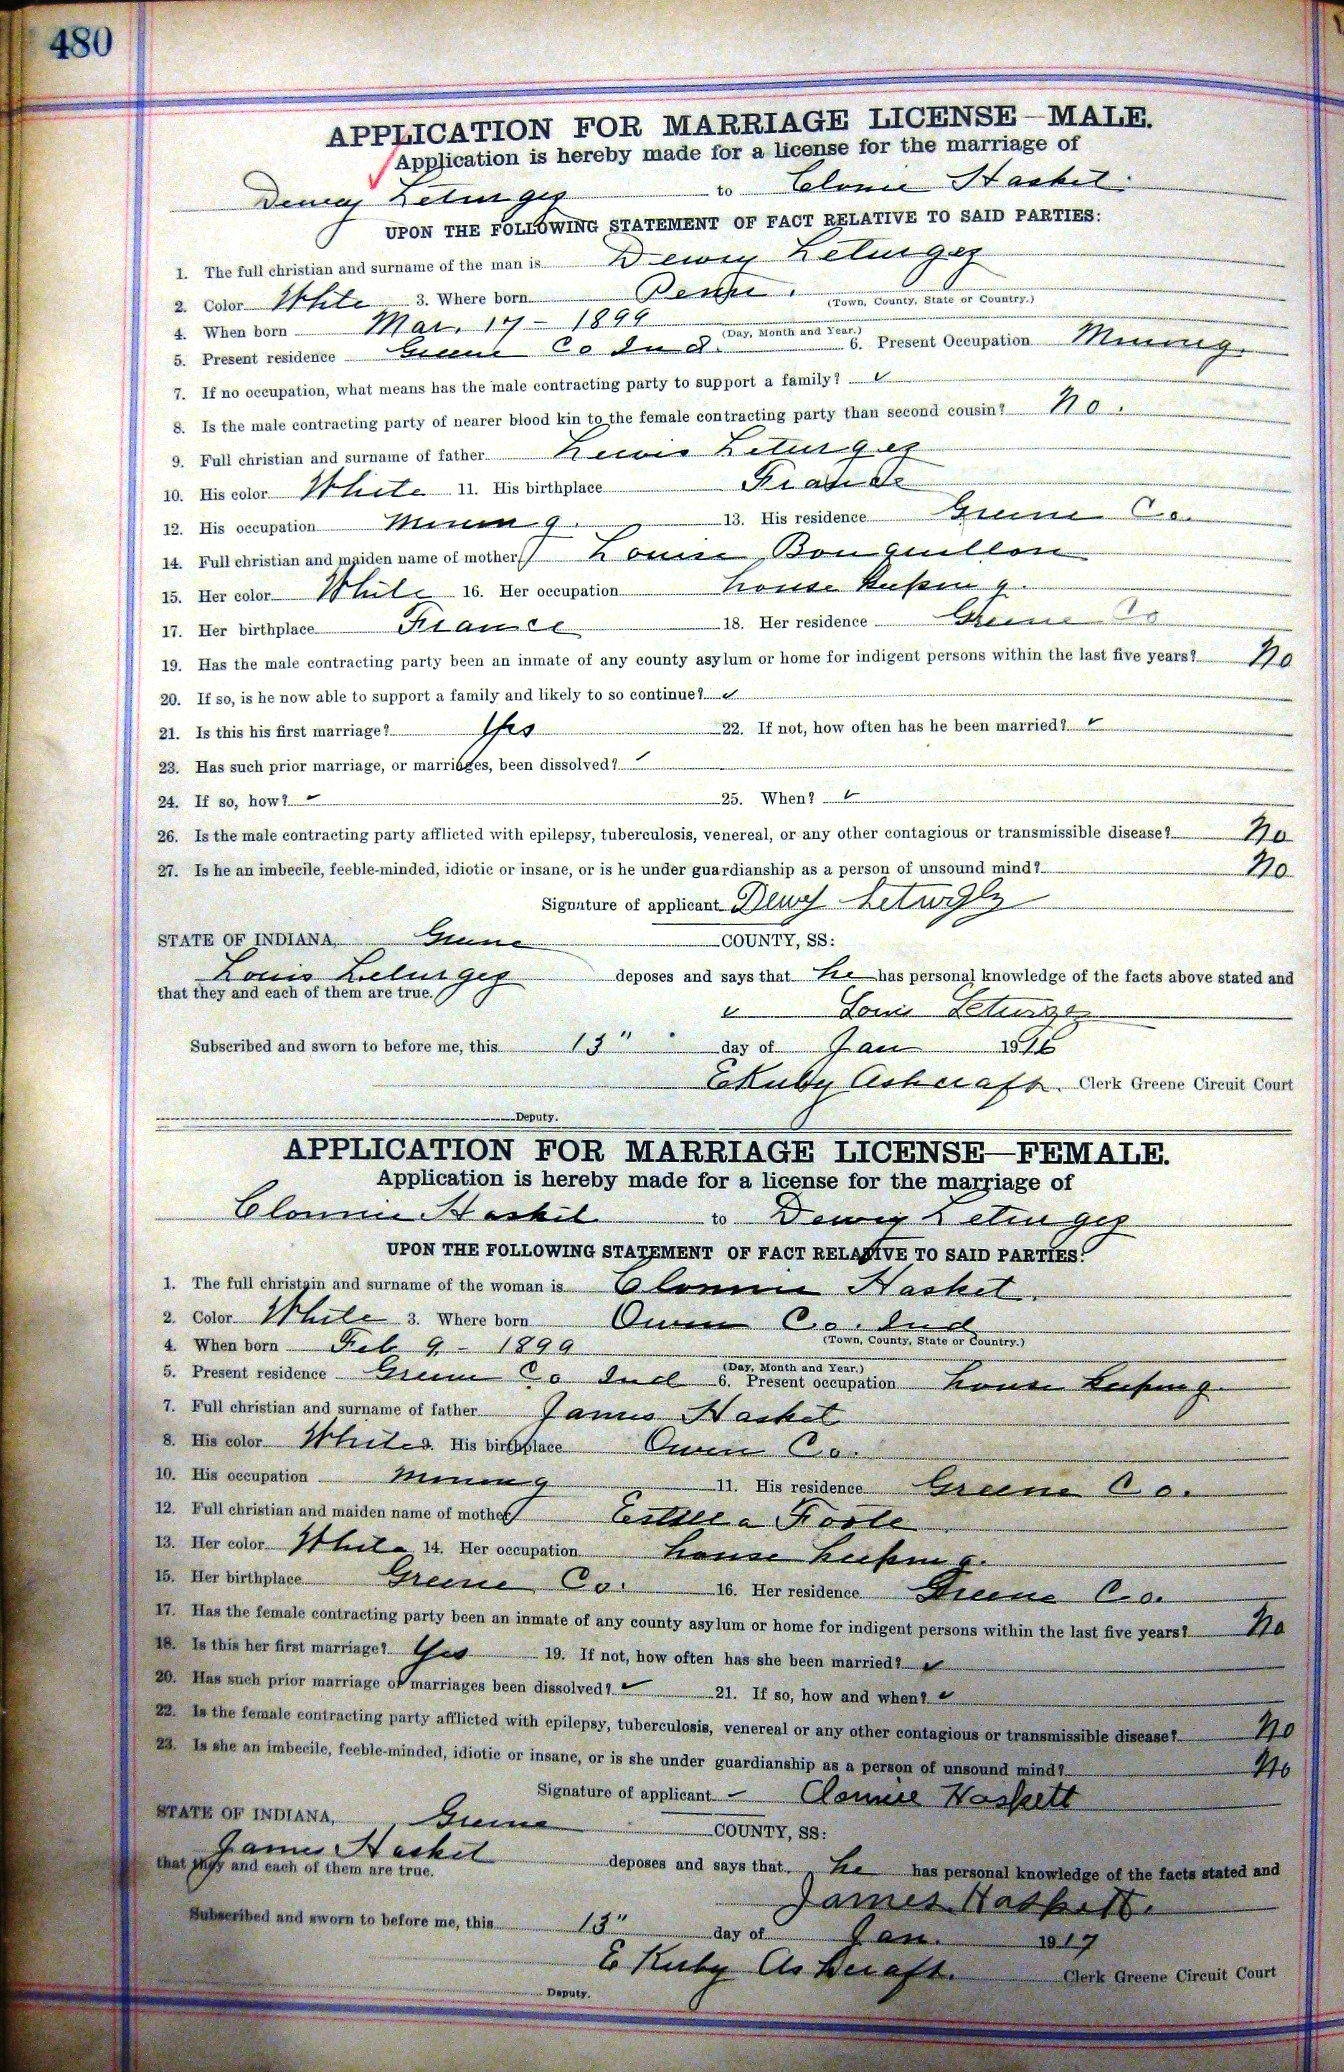 480
APPLICATION FOR MARRIAGE LICENSE—MALE.
Application is hereby made for a license for the marriage of
Dewey Leturgez to Clonie Haskel.
UPON THE FOLLOWING STATEMENT OF FACT RELATIVE TO SAID PARTIES:
1. The full christian and surname of the man is Dewey Leturgez
2. Color White 3. Where born Penn. (Town, County, State or Country.)
4. When born Mar. 17 - 1899 (Day, Month and Year.)
5. Present residence Greene Co Ind. 6. Present Occupation Mining.
7. If no occupation, what means has the male contracting party to support a family? ✓
8. Is the male contracting party of nearer blood kin to the female contracting party than second cousin? No.
9. Full christian and surname of father Lewis Leturgez
10. His color White 11. His birthplace France
12. His occupation Mining. 13. His residence Greene Co.
14. Full christian and maiden name of mother Louise Bouquillon
15. Her color White 16. Her occupation house keeping.
17. Her birthplace France 18. Her residence Greene Co
19. Has the male contracting party been an inmate of any county asylum or home for indigent persons within the last five years? No
20. If so, is he now able to support a family and likely to so continue? ✓
21. Is this his first marriage? Yes 22. If not, how often has he been married? ✓
23. Has such prior marriage, or marriages, been dissolved? ✓
24. If so, how? ✓ 25. When? ✓
26. Is the male contracting party afflicted with epilepsy, tuberculosis, venereal, or any other contagious or transmissible disease? No
27. Is he an imbecile, feeble-minded, idiotic or insane, or is he under guardianship as a person of unsound mind? No
Signature of applicant Dewey Leturgez
STATE OF INDIANA, Greene COUNTY, SS:
Louis Leturgez deposes and says that he has personal knowledge of the facts above stated and
that they and each of them are true.
✓ Louis Leturgez
Subscribed and sworn to before me, this 13" day of Jan 1916
E Kirby Ashcraft. Clerk Greene Circuit Court
Deputy.
APPLICATION FOR MARRIAGE LICENSE—FEMALE.
Application is hereby made for a license for the marriage of
Clonnie Haskil to Dewey Leturgez
UPON THE FOLLOWING STATEMENT OF FACT RELATIVE TO SAID PARTIES:
1. The full christain and surname of the woman is Clonnie Hasket.
2. Color White 3. Where born Owen Co. Ind (Town, County, State or Country.)
4. When born Feb 9 - 1899 (Day, Month and Year.)
5. Present residence Greene Co Ind 6. Present occupation house keeping
7. Full christian and surname of father James Hasket
8. His color White 9. His birthplace Owen Co.
10. His occupation Mining 11. His residence Greene Co.
12. Full christian and maiden name of mother Estella Foote
13. Her color White 14. Her occupation house keeping.
15. Her birthplace Greene Co. 16. Her residence Greene Co.
17. Has the female contracting party been an inmate of any county asylum or home for indigent persons within the last five years? No
18. Is this her first marriage? Yes 19. If not, how often has she been married? ✓
20. Has such prior marriage or marriages been dissolved? ✓ 21. If so, how and when? ✓
22. Is the female contracting party afflicted with epilepsy, tuberculosis, venereal or any other contagious or transmissible disease? No
23. Is she an imbecile, feeble-minded, idiotic or insane, or is she under guardianship as a person of unsound mind? No
Signature of applicant Clonnie Haskett
STATE OF INDIANA, Greene COUNTY, SS:
James Haskil deposes and says that he has personal knowledge of the facts stated and
that they and each of them are true.
James Haskett.
Subscribed and sworn to before me, this 13" day of Jan. 1917
E Kirby Ashcraft. Clerk Greene Circuit Court
Deputy.